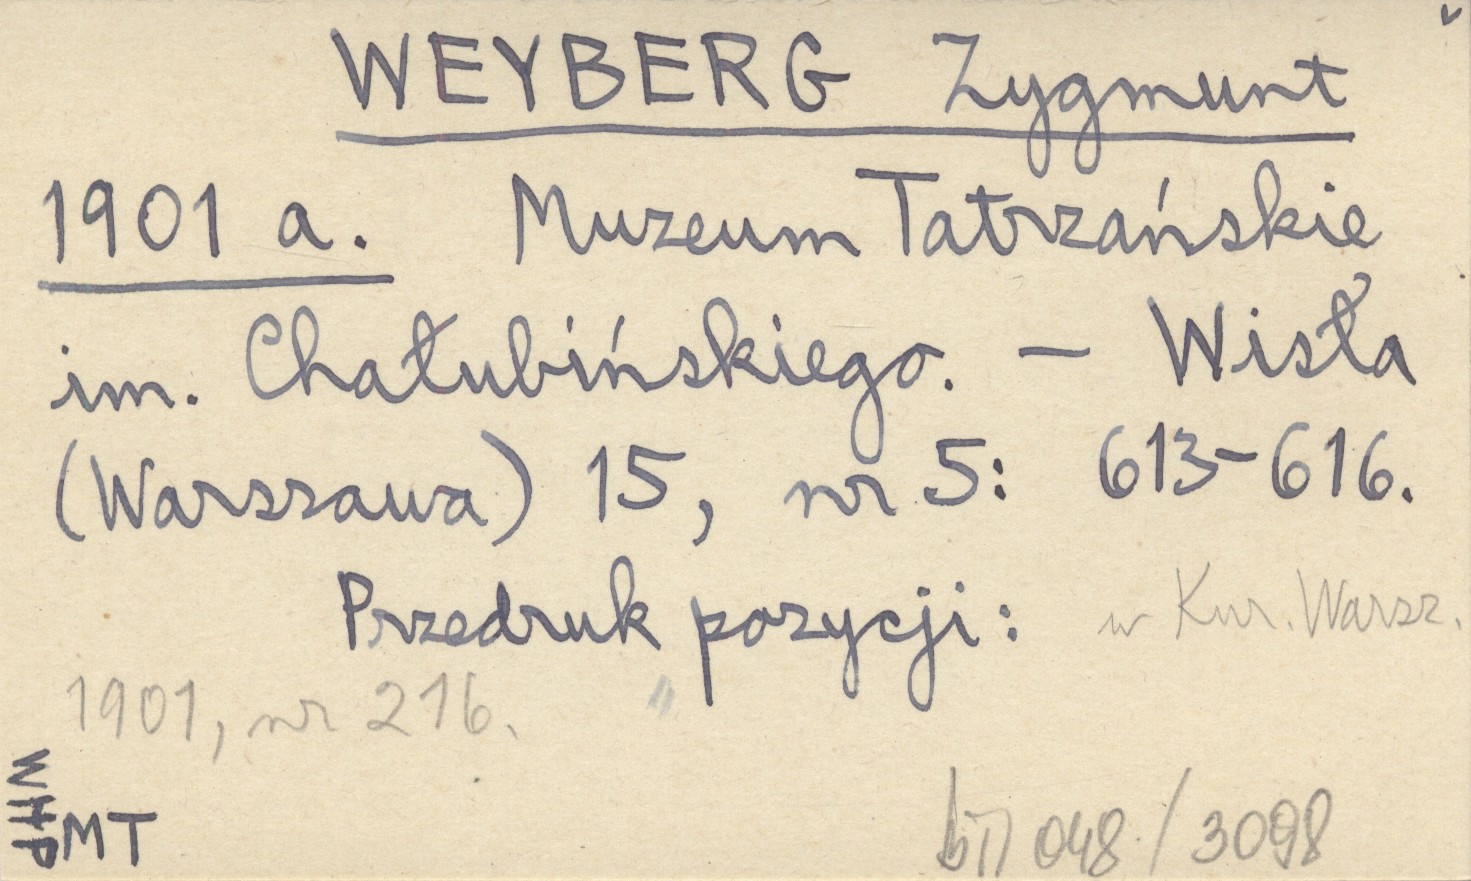 WEYBERG Zygmunt
1901 a. Muzeum Tatrzańskie
im. Chałubińskiego. – Wisła
(Warszawa) 15, nr 5: 613–616.
Przedruk pozycji: w Kur. Warsz.
1901, nr 216.
WHP
MT
048/3098